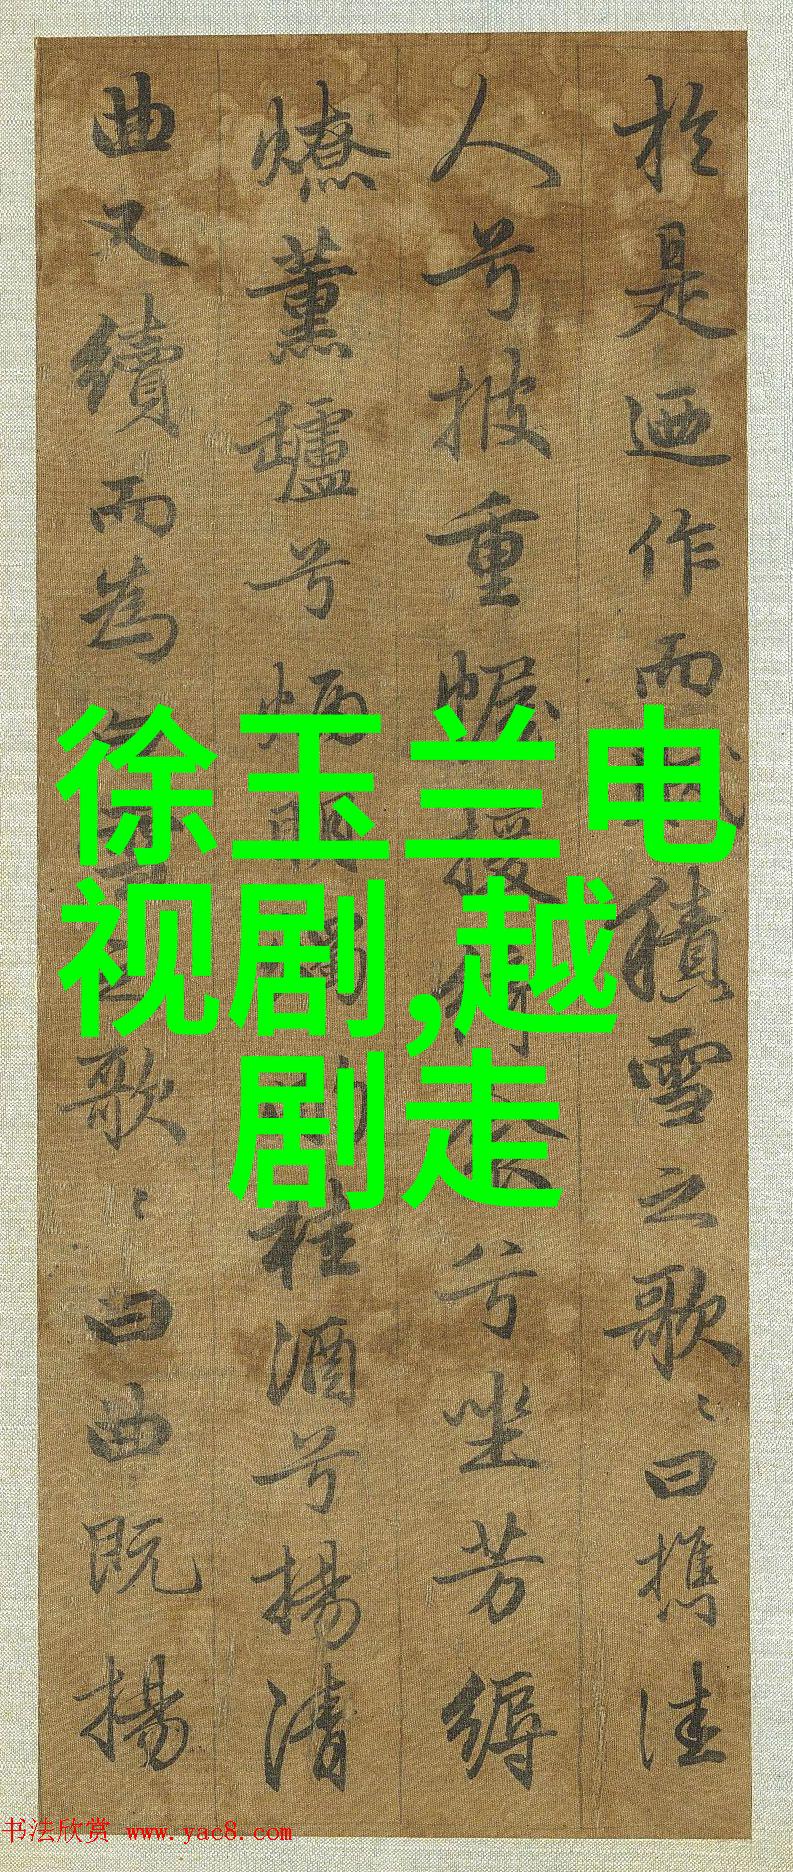 於是迺作而賦積雪之歌〻曰攜佳
人兮披重幄援綺衾兮坐芳縟
燎薰爐兮炳明燭酌桂酒兮揚清
曲又續而為白雪之歌〻曰曲既揚
徐玉兰电
视剧,越
剧走
书法欣赏 www.yac8.com